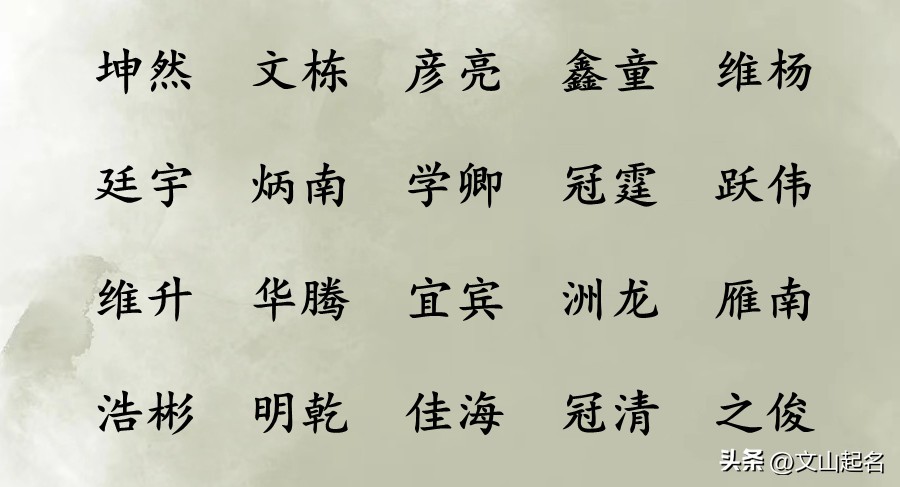 坤然 文栋 彦亮 鑫童 维杨
廷宇 炳南 学卿 冠霆 跃伟
维升 华腾 宜宾 洲龙 雁南
浩彬 明乾 佳海 冠清 之俊
头条 @文山起名